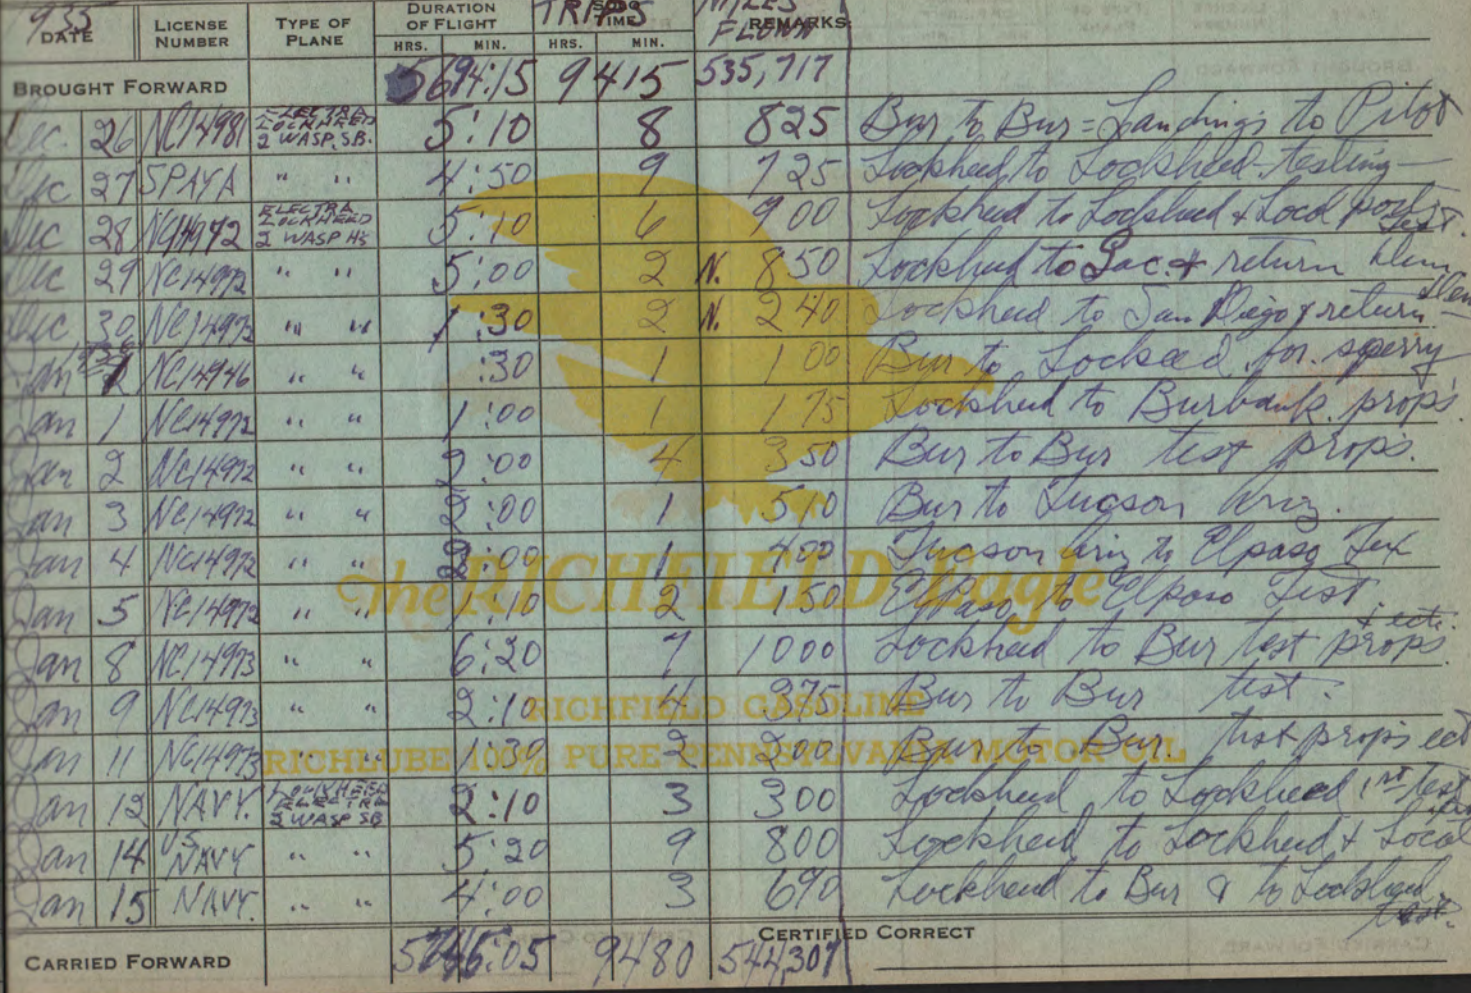 935 TRIPS MILES
DATE LICENSE NUMBER TYPE OF PLANE DURATION OF FLIGHT SOLO TIME FLOWN REMARKS
HRS. MIN. HRS. MIN.
BROUGHT FORWARD 5694:15 9415 535,717
Dec. 26 NC14981 ELECTRA LOCKHEED 2 WASP. SB. 5:10 8 825 Bur to Bur = Landings to Pilot
Dec 27 SPAYA " " 4:50 9 725 Lockheed to Lockheed - testing -
Dec 28 NC14972 ELECTRA LOCKHEED 2 WASP HS 5:10 6 900 Lockheed to Lockheed & Local port test.
Dec 29 NC14972 " " 5:00 2 N. 850 Lockheed to Sac. & return Dem
Dec 30 NC14973 " " 1:30 2 N. 240 Lockheed to San Diego & return Dem
Jan 1 NC14946 " " :30 1 100 Bur to Lockeed for. sperry
Jan 1 NC14972 " " 1:00 1 175 Lockheed to Burbank. props.
Jan 2 NC14972 " " 2:00 4 350 Bur to Bur test props.
Jan 3 NC14972 " " 2:00 1 510 Bur to Tucson Ariz.
Jan 4 NC14972 " " 2:00 1 400 Tucson Ariz to Elpaso Tex
Jan 5 NC14972 " " 1:10 2 150 El Paso to Elpaso Test
Jan 8 NC14973 " " 6:20 7 1000 Lockheed to Bur test props & ect.
Jan 9 NC14973 " " 2:10 4 375 Bur to Bur test.
Jan 11 NC14973 " " 1:30 2 200 Bur to Bur. test props ect
Jan 12 NAVY. LOCKHEED ELECTRA 2 WASP SB 2:10 3 300 Lockheed to Lockheed 1st test
Jan 14 US NAVY " " 5:20 9 800 Lockheed to Lockheed & Local
Jan 15 NAVY. " " 4:00 3 690 Lockheed to Bur & to Lockheed. test.
CARRIED FORWARD 5746:05 9480 544,307 CERTIFIED CORRECT
the RICHFIELD Eagle
RICHFIELD GASOLINE
RICHLUBE 100% PURE PENNSYLVANIA MOTOR OIL